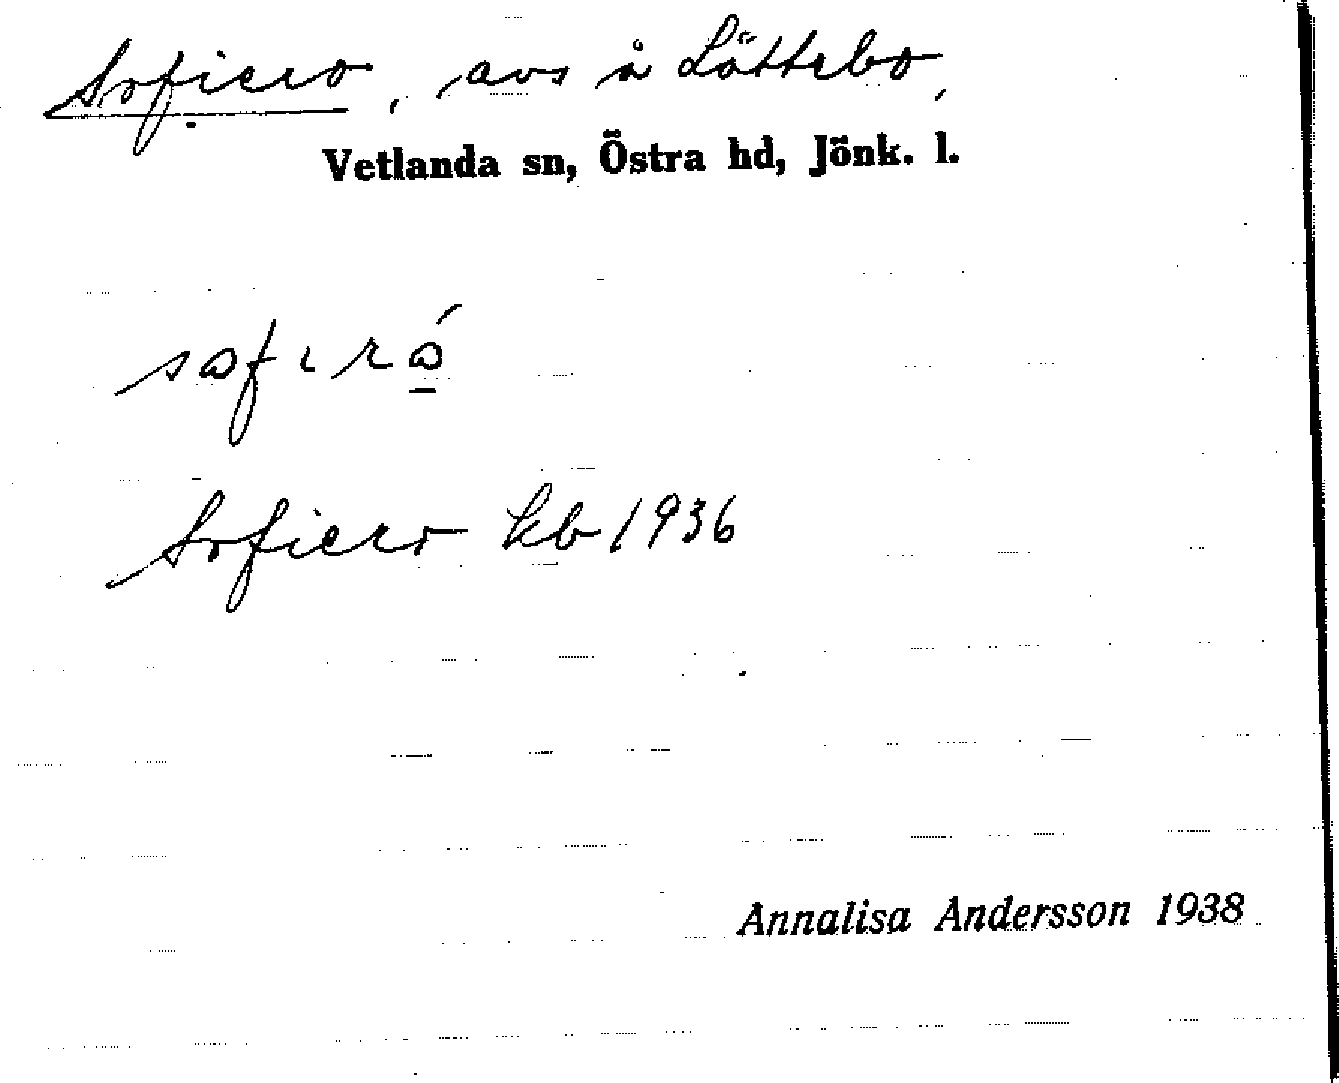 Sofiero, avs å Löttebo,
Vetlanda sn, Östra hd, Jönk. l.
Sofiero kb 1936
Annalisa Andersson 1938